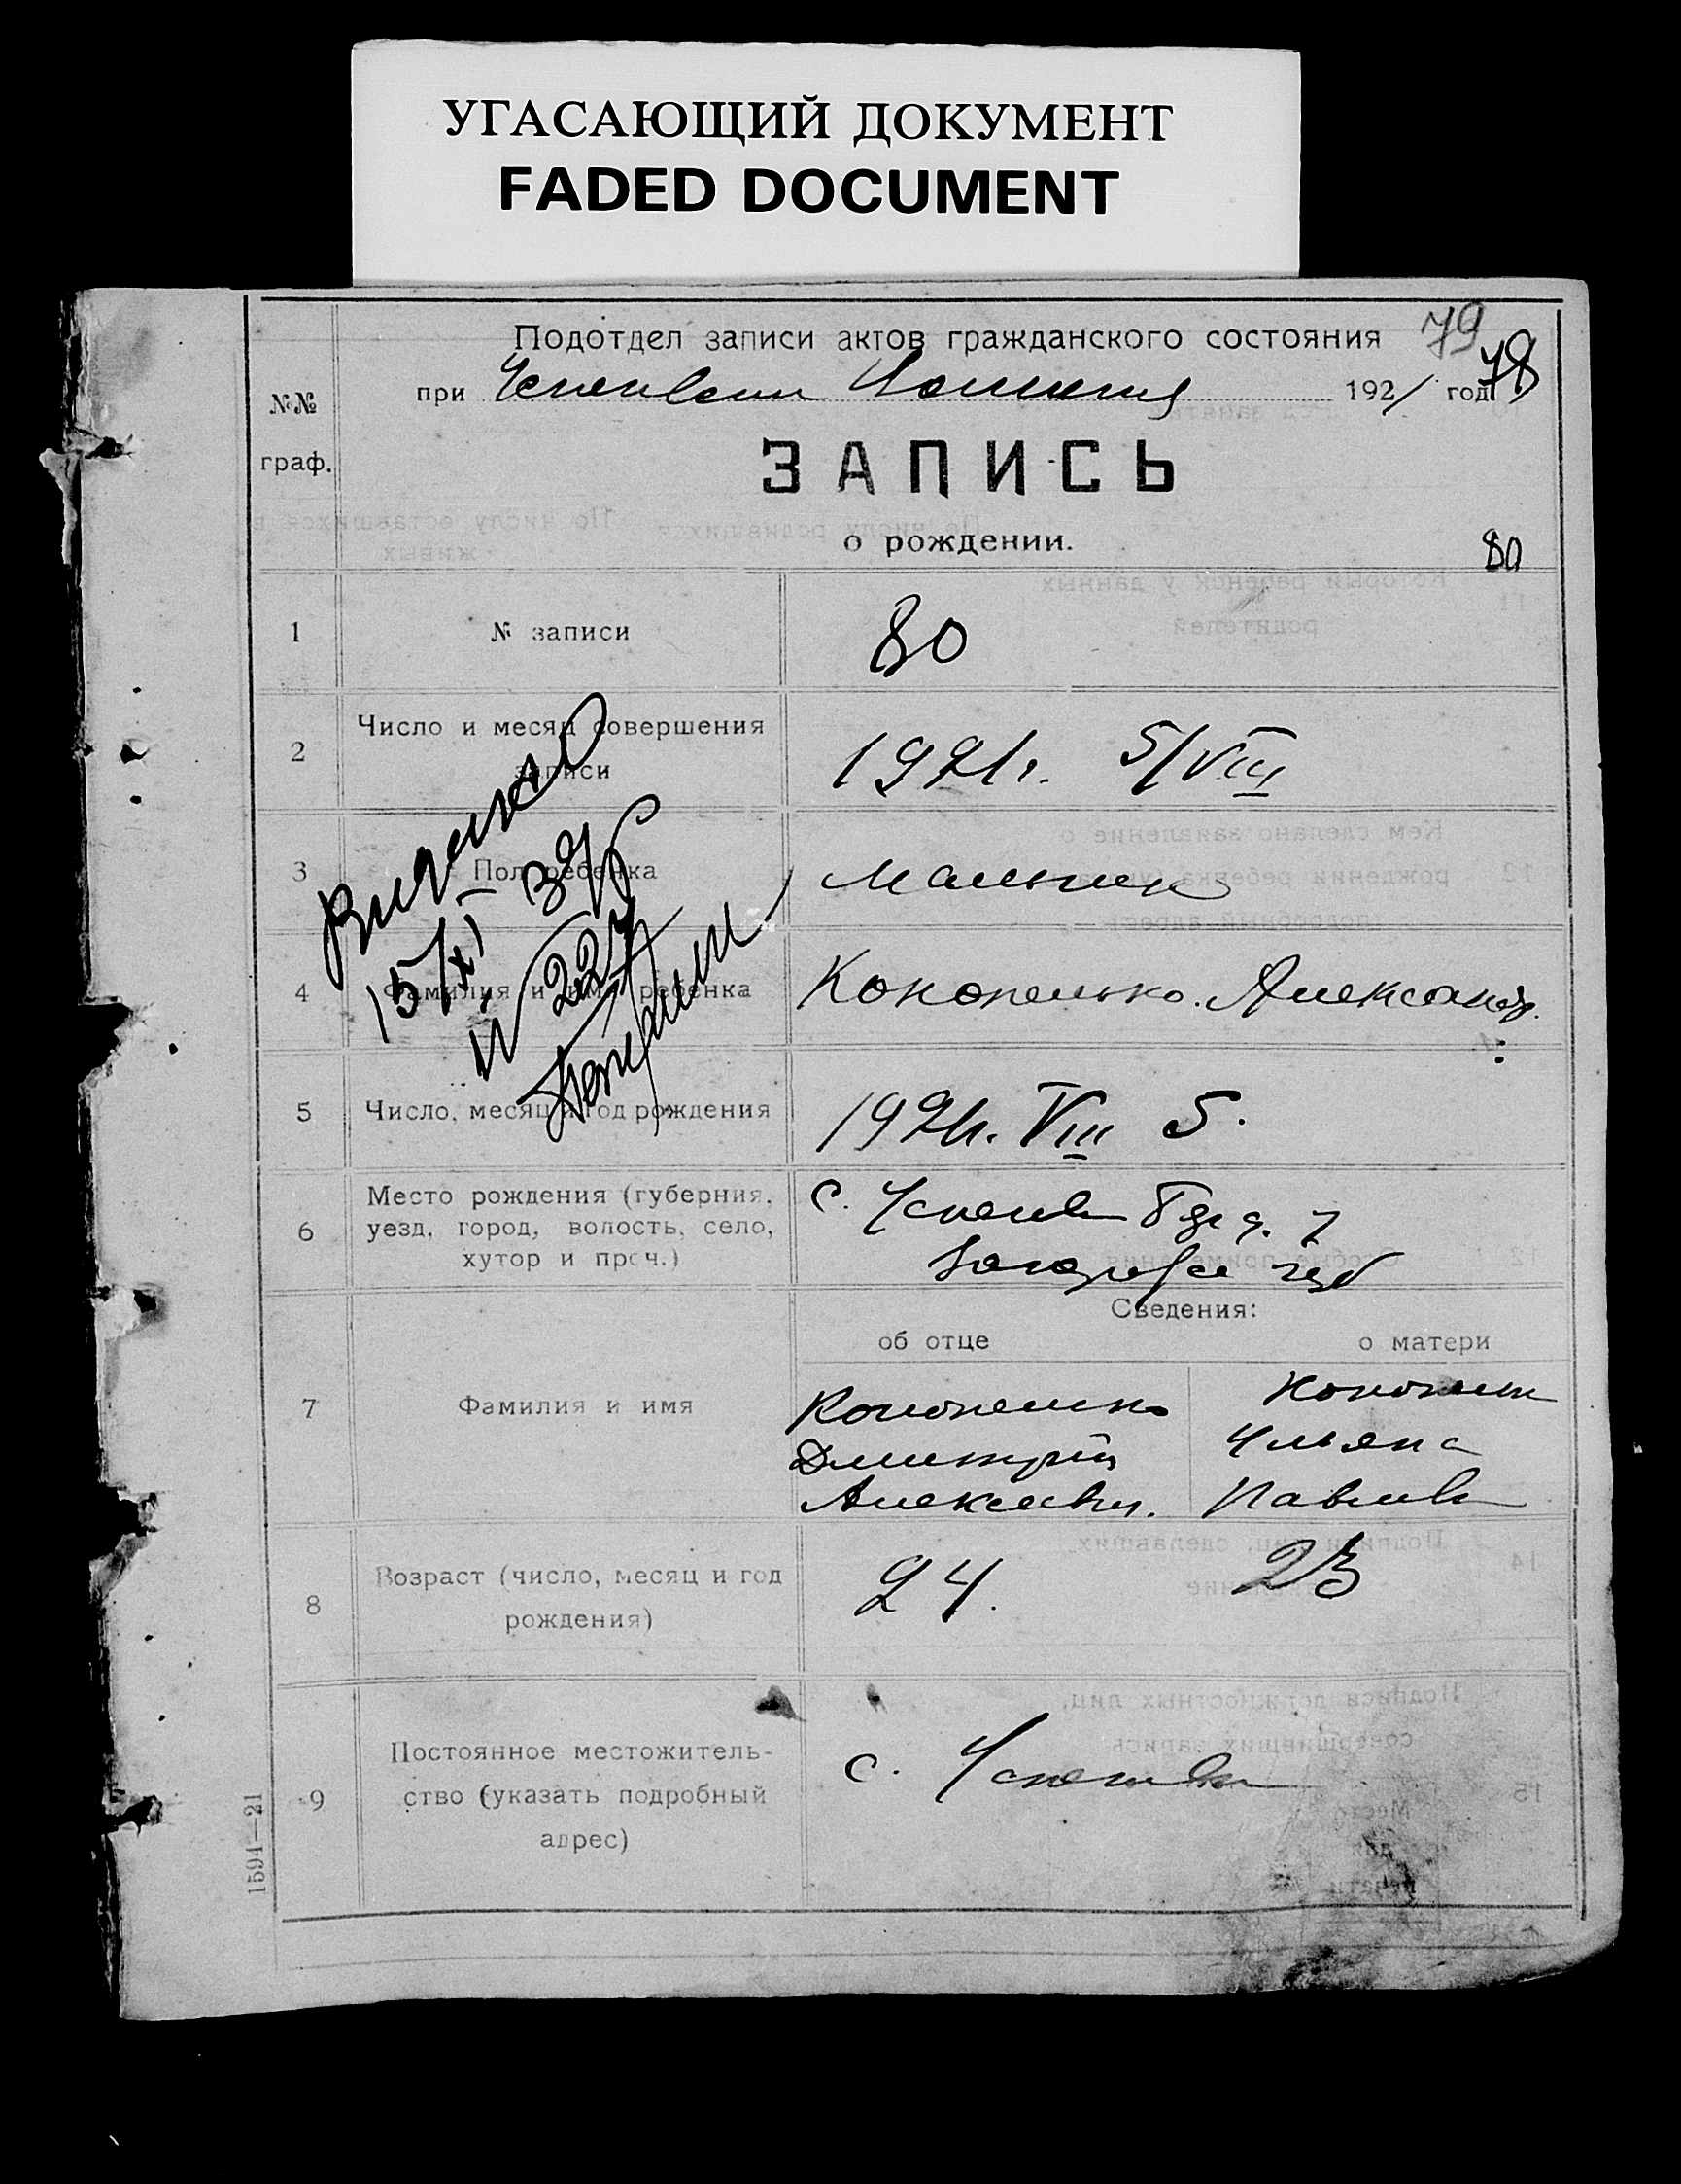 УГАСАЮЩИЙ ДОКУМЕНТ
FADED DOCUMENT
79
Подотдел записи актов гражданского состояния
78
№№
граф.
при 1921 год
ЗАПИСЬ
о рождении.
80
1 № записи 80
2 Число и месяц совершения
записи
1921г. 5/VIII
3 Пол ребенка Мальчик
4 Фамилия и имя ребенка Конопелько Александр.
Выдано
15/XI 39г
№ 227
5 Число, месяц и год рождения 1921г. VIII 5.
6 Место рождения (губерния,
уезд, город, волость, село,
хутор и проч.)
с. Успеновка
губ
Сведения:
об отце о матери
7 Фамилия и имя
Конопелько
Дмитрий
Алексеевич.
Конопельк
Ульяна
Павлов
8 Возраст (число, месяц и год
рождения)
24. 23
9 Постоянное местожитель-
ство (указать подробный
адрес)
с. Успеновка
1594—21